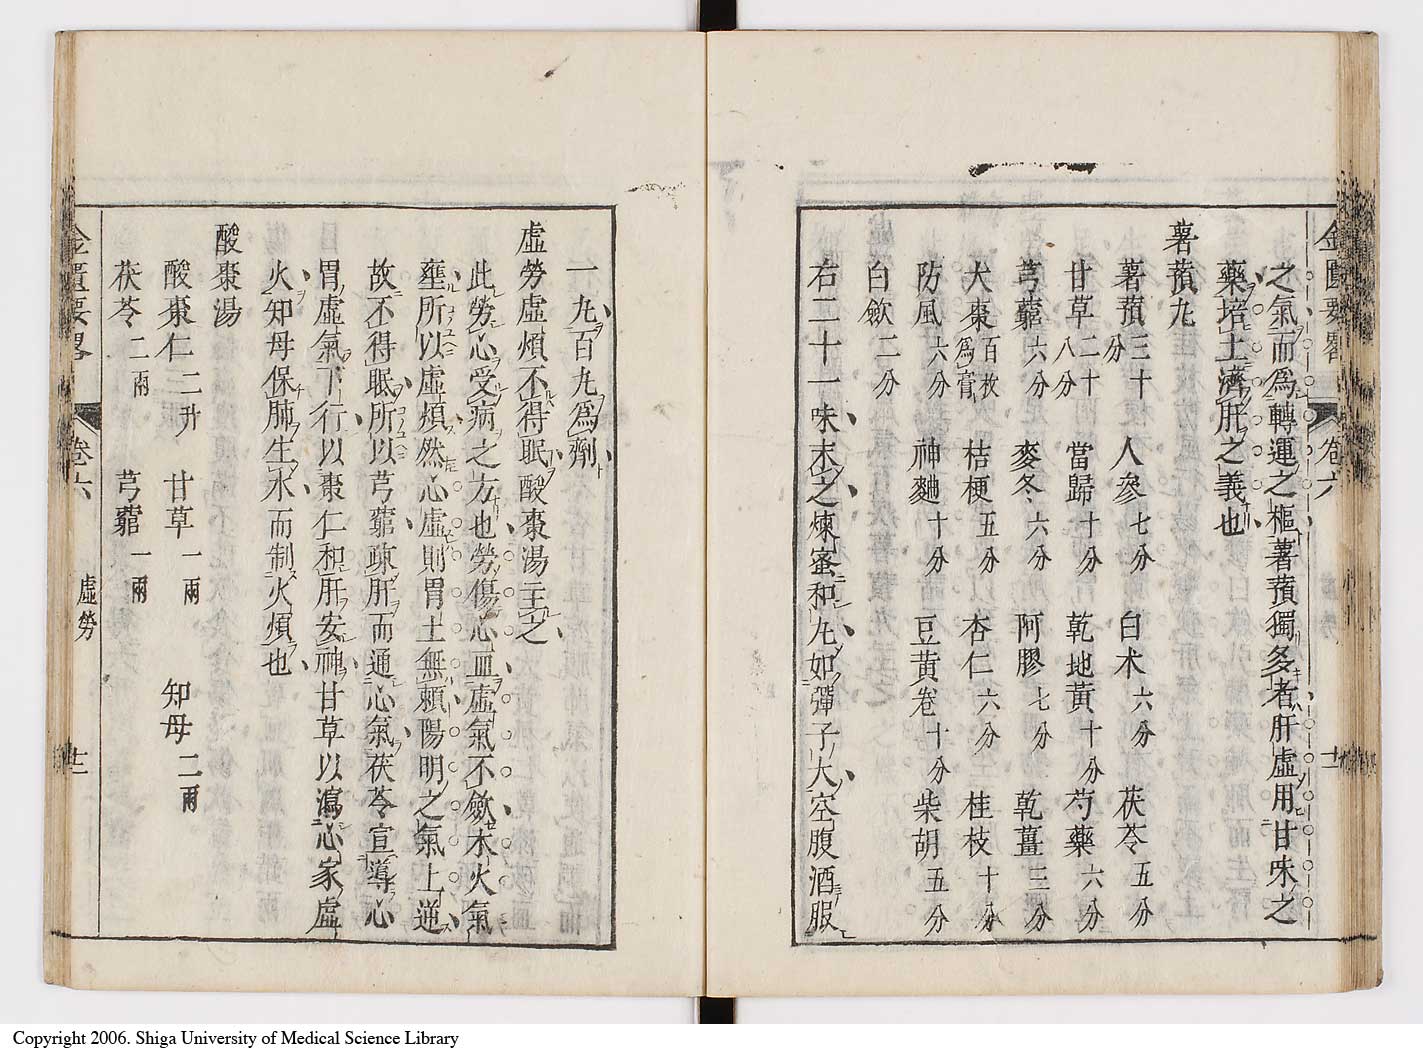 金匱要畧 卷六 十一
之氣而爲轉運之樞薯蕷獨多者肝虛用甘味之
藥培土濟肝之義也
薯蕷丸
薯蕷三十分 人參七分 白朮六分 茯苓五分
甘草二十八分 當歸十分 乾地黃十分 芍藥六分
芎藭六分 麥冬六分 阿膠七分 乾薑三分
大棗百枚爲膏 桔梗五分 杏仁六分 桂枝十分
防風六分 神麯十分 豆黃卷十分 柴胡五分
白斂二分
右二十一味末之煉蜜和丸如彈子大空腹酒服
一丸百丸爲劑
虛勞虛煩不得眠酸棗湯主之
此勞心受病之方也勞傷心血虛氣不斂木火氣
壅所以虛煩然心虛則胃土無賴陽明之氣上逆
故不得眠所以芎藭疎肝而通心氣茯苓宣導心
胃虛氣下行以棗仁和肝安神甘草以瀉心家虛
火知母保肺生水而制火煩也
酸棗湯
酸棗仁二升 甘草一兩 知母二兩
茯苓二兩 芎藭一兩
金匱要畧 卷六 虛勞 十二
Copyright 2006. Shiga University of Medical Science Library